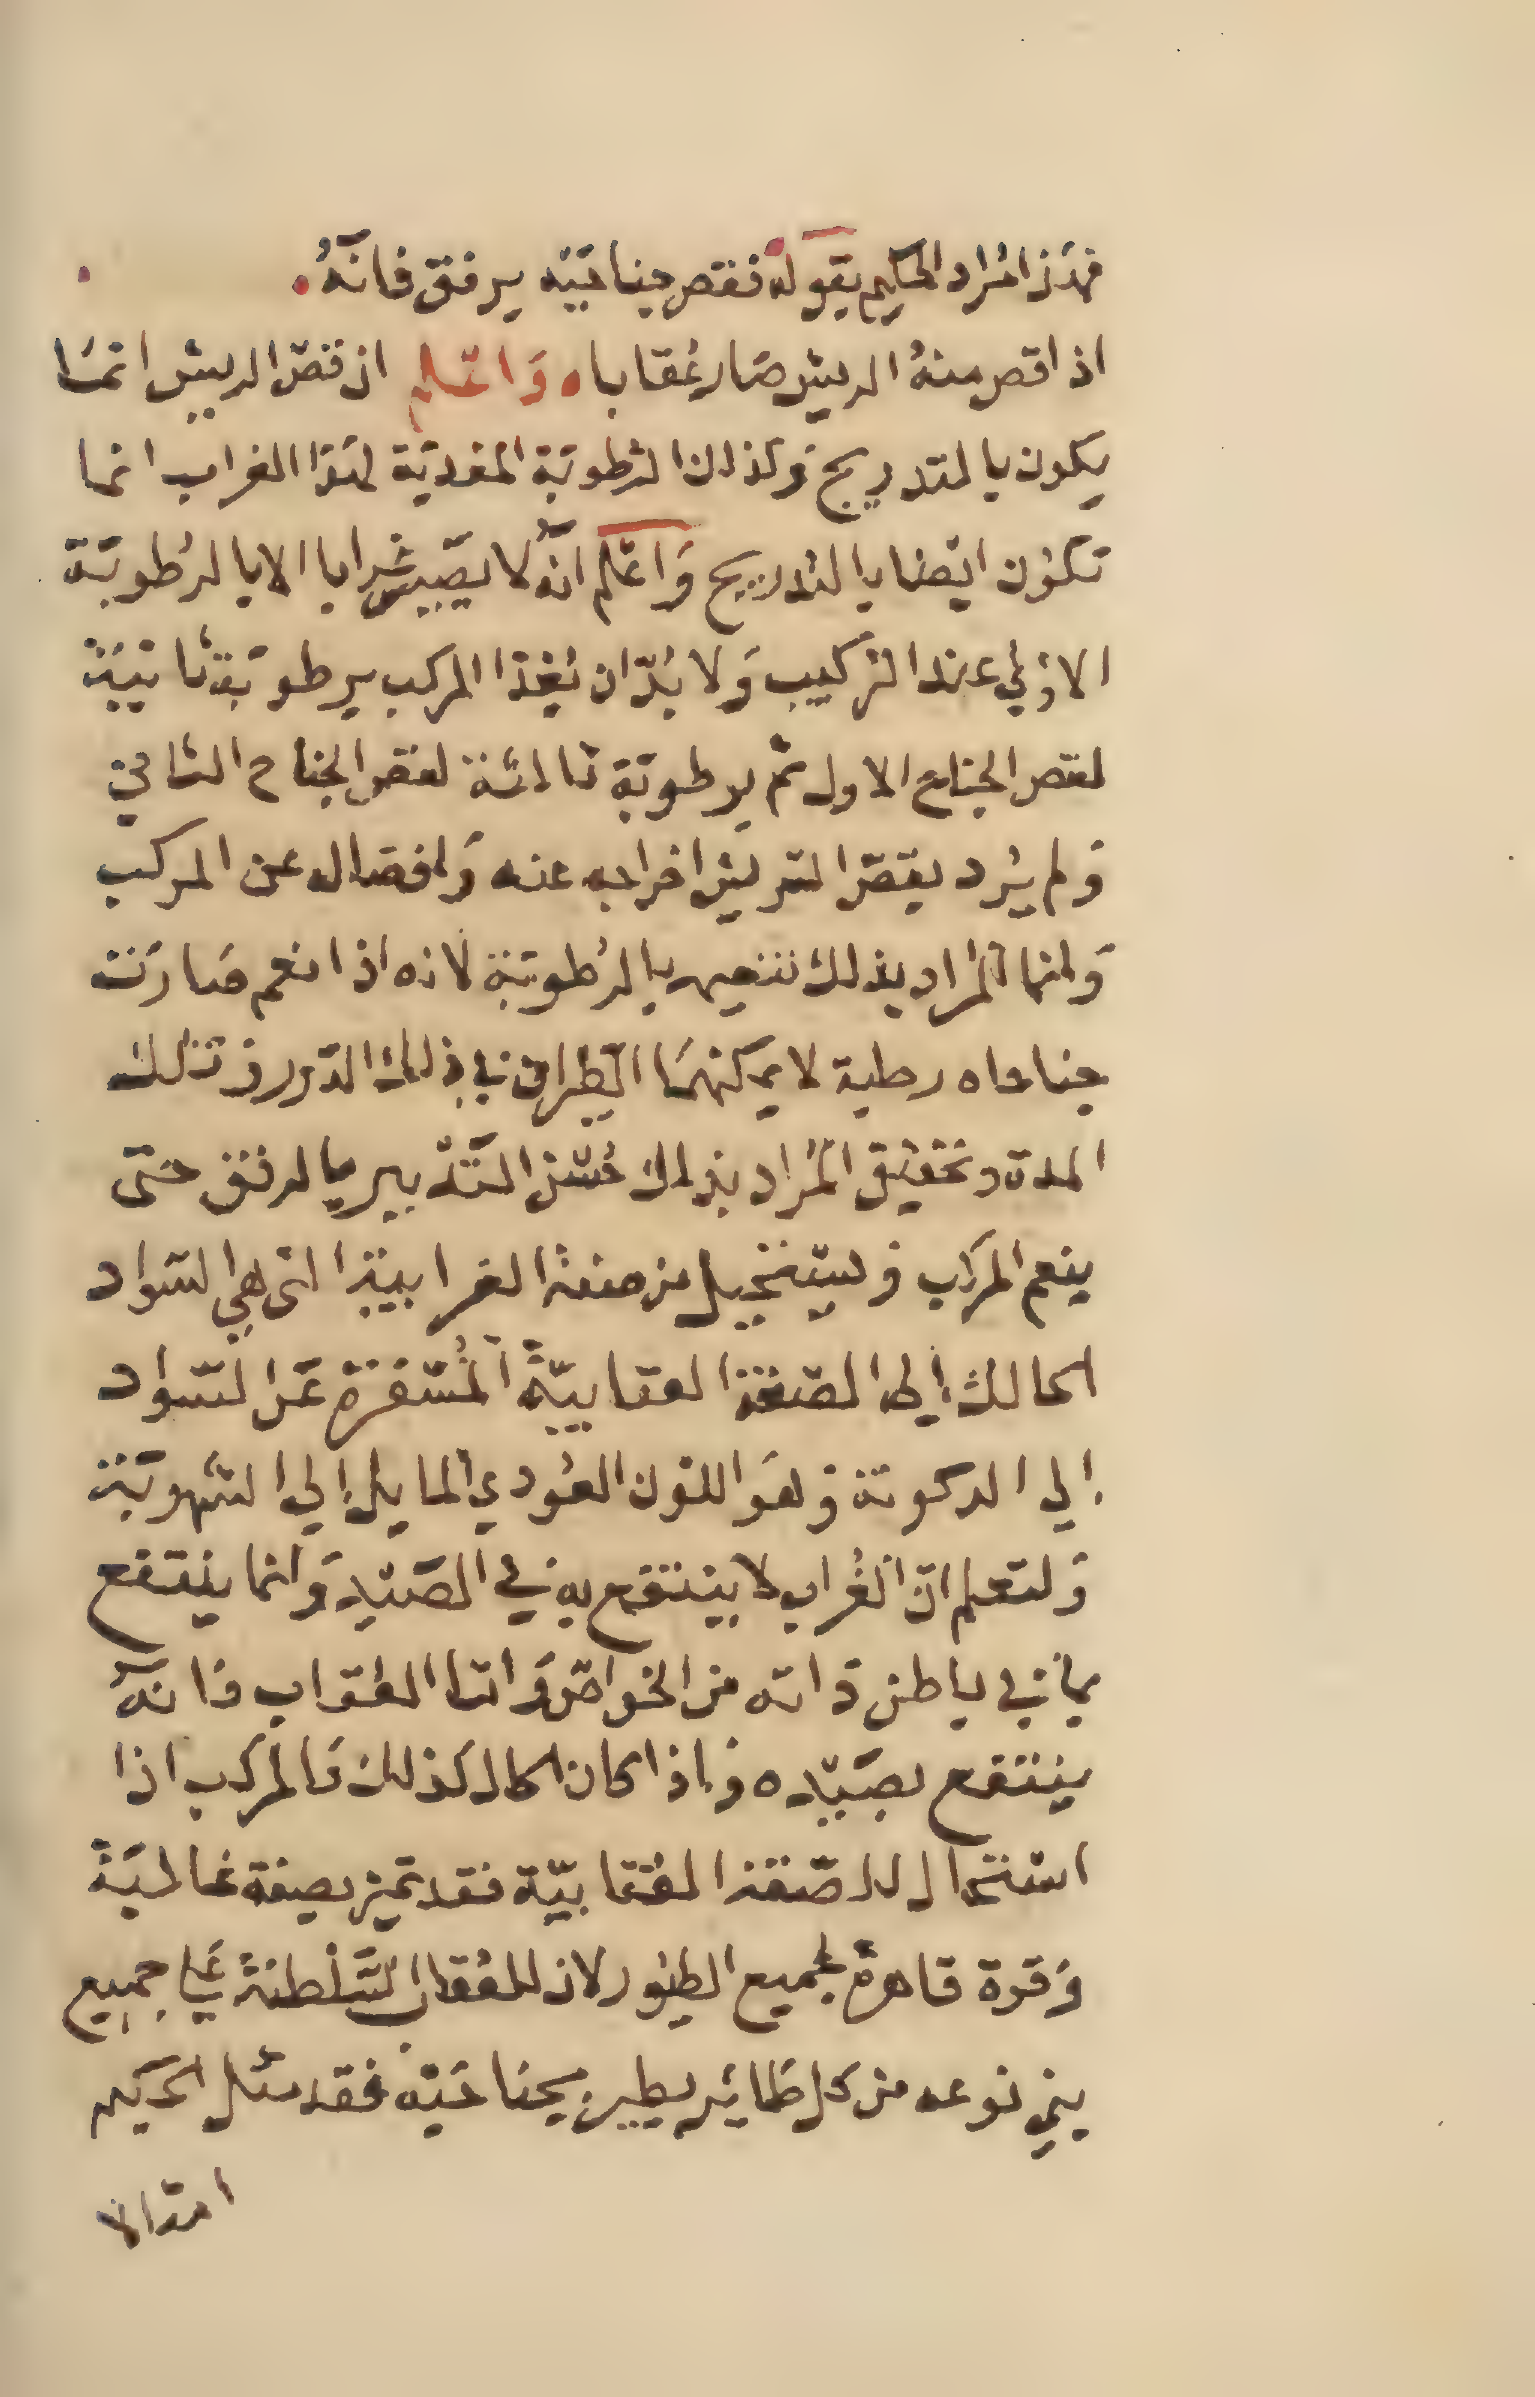 فهَذا مُراد الحكيم بقوله فقص جناحَيْه برفق فانّهُ
اذا قص منهُ الريش صَار عُقابا ه وَاعْلم ان قصّ الريش انمَا
يكون بالتدريج وَكذلك الرُطوبَة المغديَة لهَذا الغراب انما
تكوُن ايْضا بالتدريج وَاعْلم انهُ لا يصَيّر غرابا الا بالرُطوبَة
الاوُلي عند التركيب وَلا بُدّ ان يُغذا المركب برطوبَة ثانيَة
لقص الجناح الاول ثم برطوبَة ثالثة لقص الجناح الثاني
وَلم يُرد بقصّ الريش اخراجه عنه وَانفصاله عن المركب
وَانما المُراد بذلك تنعيمه بالرُطوبَة لانه اذا نعم صَارَت
جناحاه رطبة لا يمكنهمَا الطيران في ذلك الدّور وَتلك
المدة وتحقيق المُراد بذلك حُسْن التَّدْبير بالرفق حتى
ينعم المركب وَيستحيل من صفة الغرابية التي هي السَواد
الحالك إلى الصّفة العقابيّة المُسْفرة عَن السّواد
إلى الدكونة وَهوَ اللوْن العُودي المايل إلى الشهوبَة
وَلتعلم انّ الغُراب لا ينتفع به في الصَيْد وَانما ينتفع
بما في باطن ذاته من الخواصّ وَامّا العُقاب فانهُ
ينتفع بصَيْده وَإذا كان الحال كذلك فالمركب اذا
استحال للصّفة العُقابيّة فقد تميز بصفة غالبَة
وَقوة قاهرة لجميع الطيُور لان للعُقاب السَّلْطنة عَلي جميع
بني نوعه من كل طَائر يطير بجناحَيْه فقد مثل الحكيم
امثالا